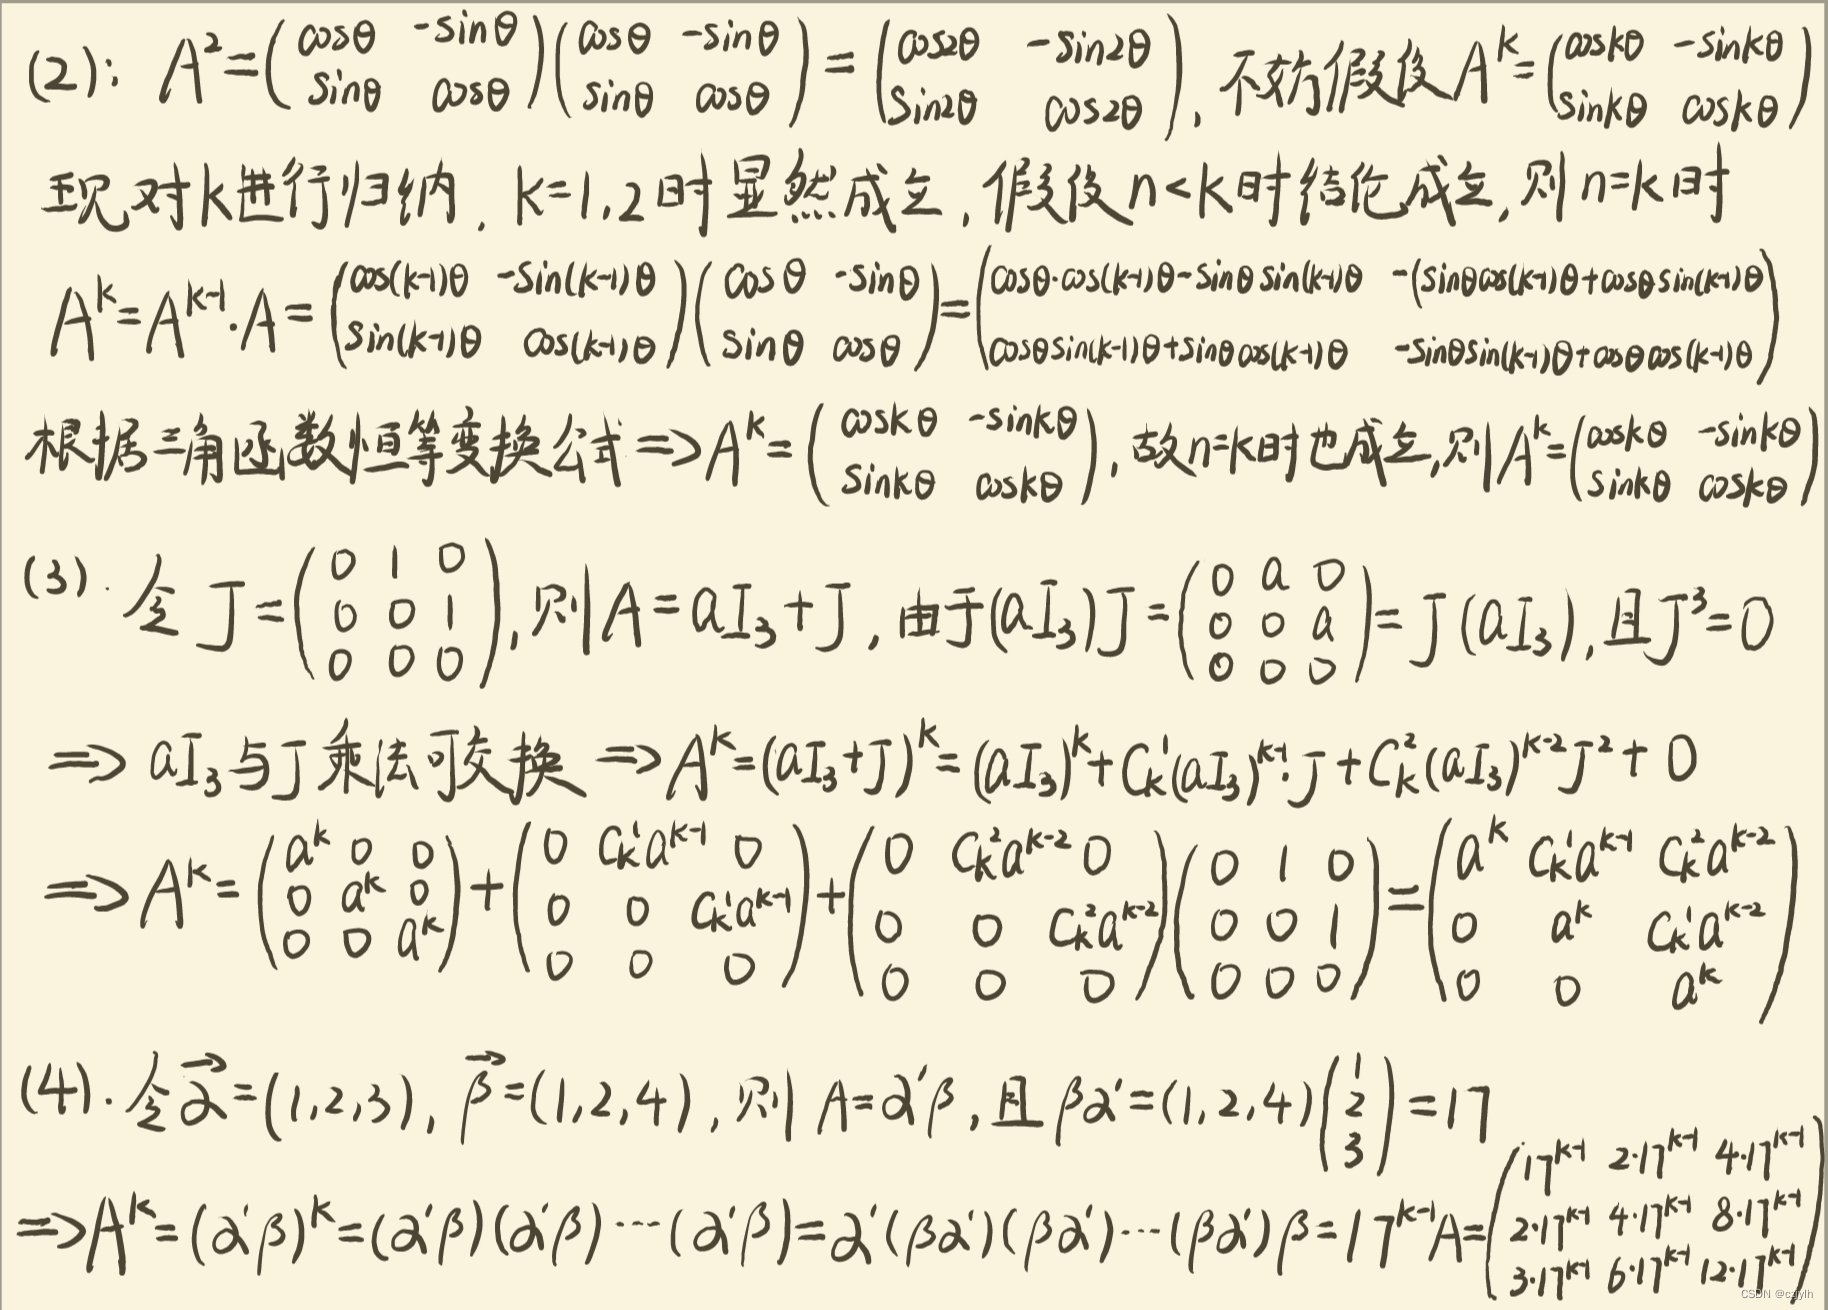 (2): A²=(cosθ -sinθ; sinθ cosθ)(cosθ -sinθ; sinθ cosθ)=(cos2θ -sin2θ; sin2θ cos2θ), 不妨假设A^k=(coskθ -sinkθ; sinkθ coskθ)
现对k进行归纳, k=1,2时显然成立, 假设n<k时结论成立, 则n=k时
A^k=A^{k-1}·A=(cos(k-1)θ -sin(k-1)θ; sin(k-1)θ cos(k-1)θ)(cosθ -sinθ; sinθ cosθ)=(cosθ·cos(k-1)θ-sinθsin(k-1)θ -(sinθcos(k-1)θ+cosθsin(k-1)θ; cosθsin(k-1)θ+sinθcos(k-1)θ -sinθsin(k-1)θ+cosθcos(k-1)θ)
根据三角函数恒等变换公式⇒A^k=(coskθ -sinkθ; sinkθ coskθ), 故n=k时也成立, 则A^k=(coskθ -sinkθ; sinkθ coskθ)
(3). 令J=(0 1 0; 0 0 1; 0 0 0), 则A=aI₃+J, 由于(aI₃)J=(0 a 0; 0 0 a; 0 0 0)=J(aI₃), 且J³=0
⇒ aI₃与J乘法可交换 ⇒A^k=(aI₃+J)^k=(aI₃)^k+C_k^1(aI₃)^{k-1}·J+C_k^2(aI₃)^{k-2}J²+0
⇒A^k=(a^k 0 0; 0 a^k 0; 0 0 a^k)+(0 C_k^1a^{k-1} 0; 0 0 C_k^1a^{k-1}; 0 0 0)+(0 C_k^2a^{k-2} 0; 0 0 C_k^2a^{k-2}; 0 0 0)(0 1 0; 0 0 1; 0 0 0)=(a^k C_k^1a^{k-1} C_k^2a^{k-2}; 0 a^k C_k^1a^{k-2}; 0 0 a^k)
(4). 令α⃗=(1,2,3), β⃗=(1,2,4), 则A=α'β, 且βα'=(1,2,4)(1; 2; 3)=17
⇒A^k=(α'β)^k=(α'β)(α'β)···(α'β)=α'(βα')(βα')···(βα')β=17^{k-1}A=(17^{k-1} 2·17^{k-1} 4·17^{k-1}; 2·17^{k-1} 4·17^{k-1} 8·17^{k-1}; 3·17^{k-1} 6·17^{k-1} 12·17^{k-1})
CSDN @czjylh